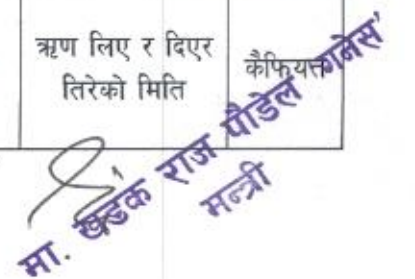 ऋण लिए र दिएर
तिरेको मिति
कैफियत
मा. खडक राज पौडेल 'गनेस'
मन्त्री